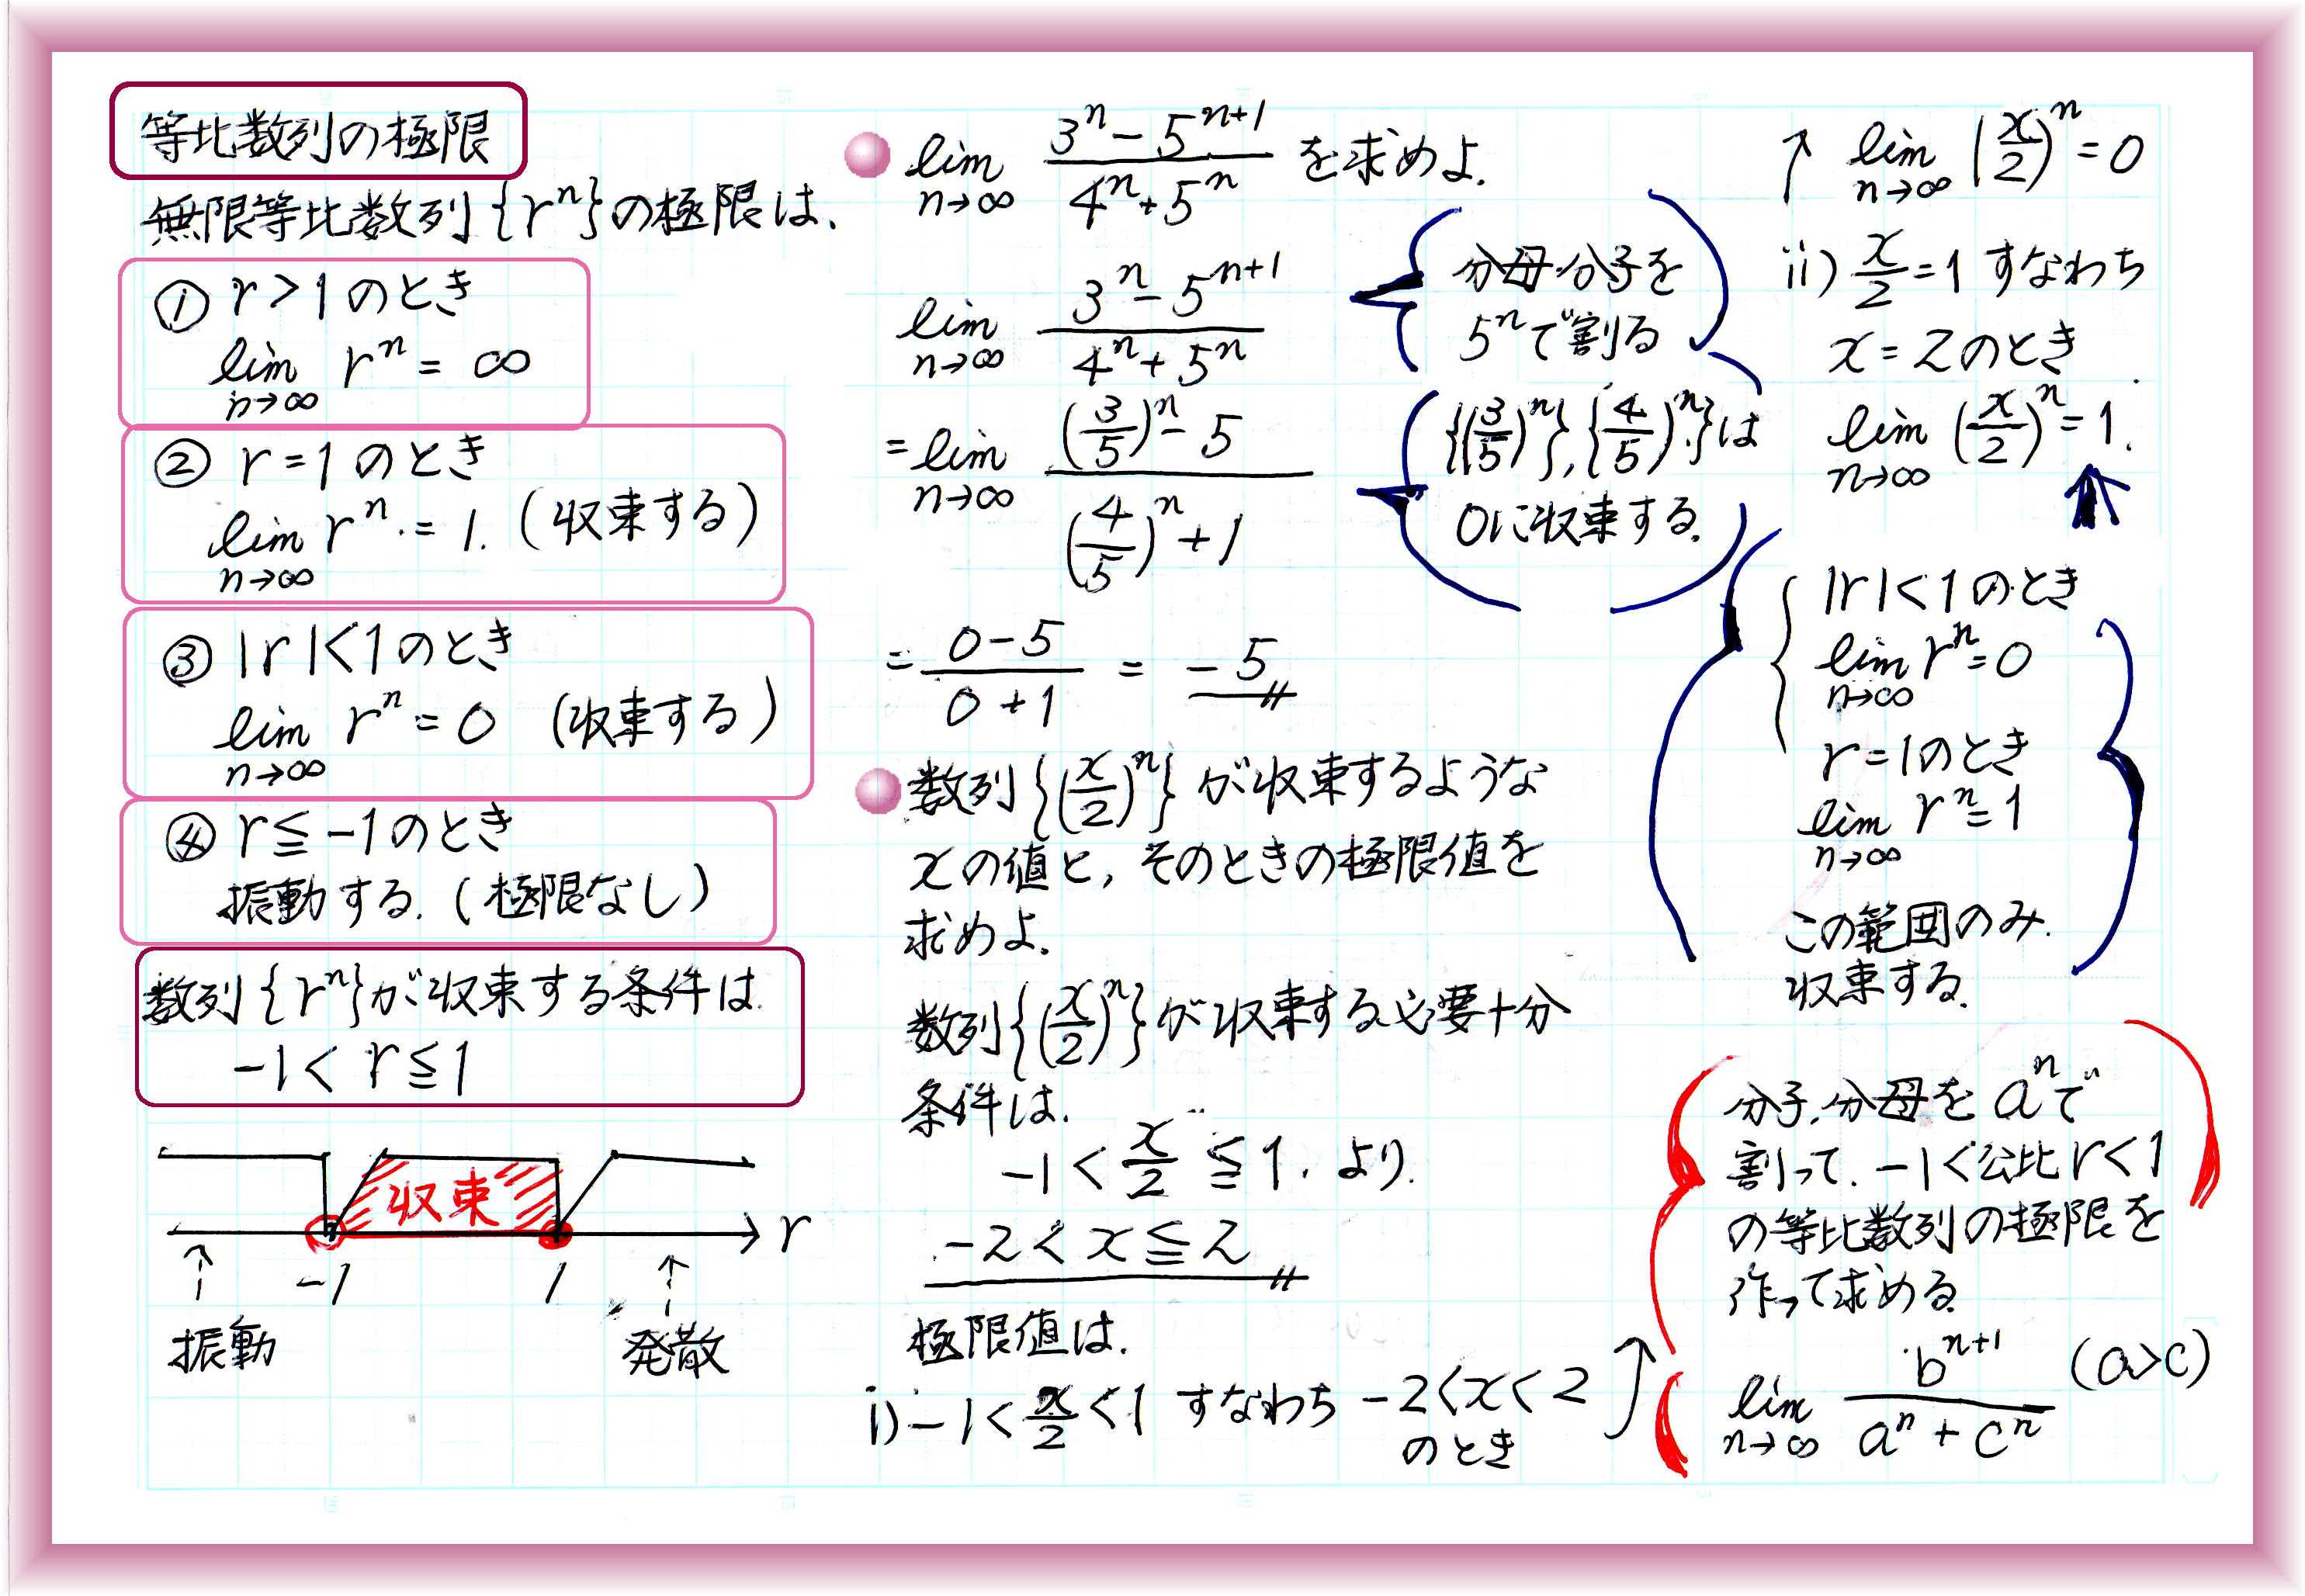 等比数列の極限
無限等比数列{rⁿ}の極限は、
① r > 1 のとき
lim_{n→∞} rⁿ = ∞
② r = 1 のとき
lim_{n→∞} rⁿ = 1. (収束する)
③ |r| < 1 のとき
lim_{n→∞} rⁿ = 0 (収束する)
④ r ≦ -1 のとき
振動する. (極限なし)
数列{rⁿ}が収束する条件は
-1 < r ≦ 1
収束
r
-1 1
振動 発散
lim_{n→∞} (3ⁿ - 5ⁿ⁺¹)/(4ⁿ + 5ⁿ) を求めよ.
lim_{n→∞} (3ⁿ - 5ⁿ⁺¹)/(4ⁿ + 5ⁿ)
分母・分子を
5ⁿで割る
= lim_{n→∞} ((3/5)ⁿ - 5)/((4/5)ⁿ + 1)
{(3/5)ⁿ}, {(4/5)ⁿ}は
0に収束する.
= (0 - 5)/(0 + 1) = -5
数列{(x/2)ⁿ}が収束するような
xの値と, そのときの極限値を
求めよ.
数列{(x/2)ⁿ}が収束する必要十分
条件は.
-1 < x/2 ≦ 1. より.
-2 < x ≦ 2
極限値は.
i) -1 < x/2 < 1 すなわち -2 < x < 2
のとき
↑ lim_{n→∞} (x/2)ⁿ = 0
ii) x/2 = 1 すなわち
x = 2 のとき
lim_{n→∞} (x/2)ⁿ = 1.
|r| < 1 のとき
lim_{n→∞} rⁿ = 0
r = 1 のとき
lim_{n→∞} rⁿ = 1
この範囲のみ.
収束する.
分子.分母を aⁿで
割って. -1 < 公比 r < 1
の等比数列の極限を
作って求める.
lim_{n→∞} bⁿ⁺¹/(aⁿ + cⁿ) (a>c)